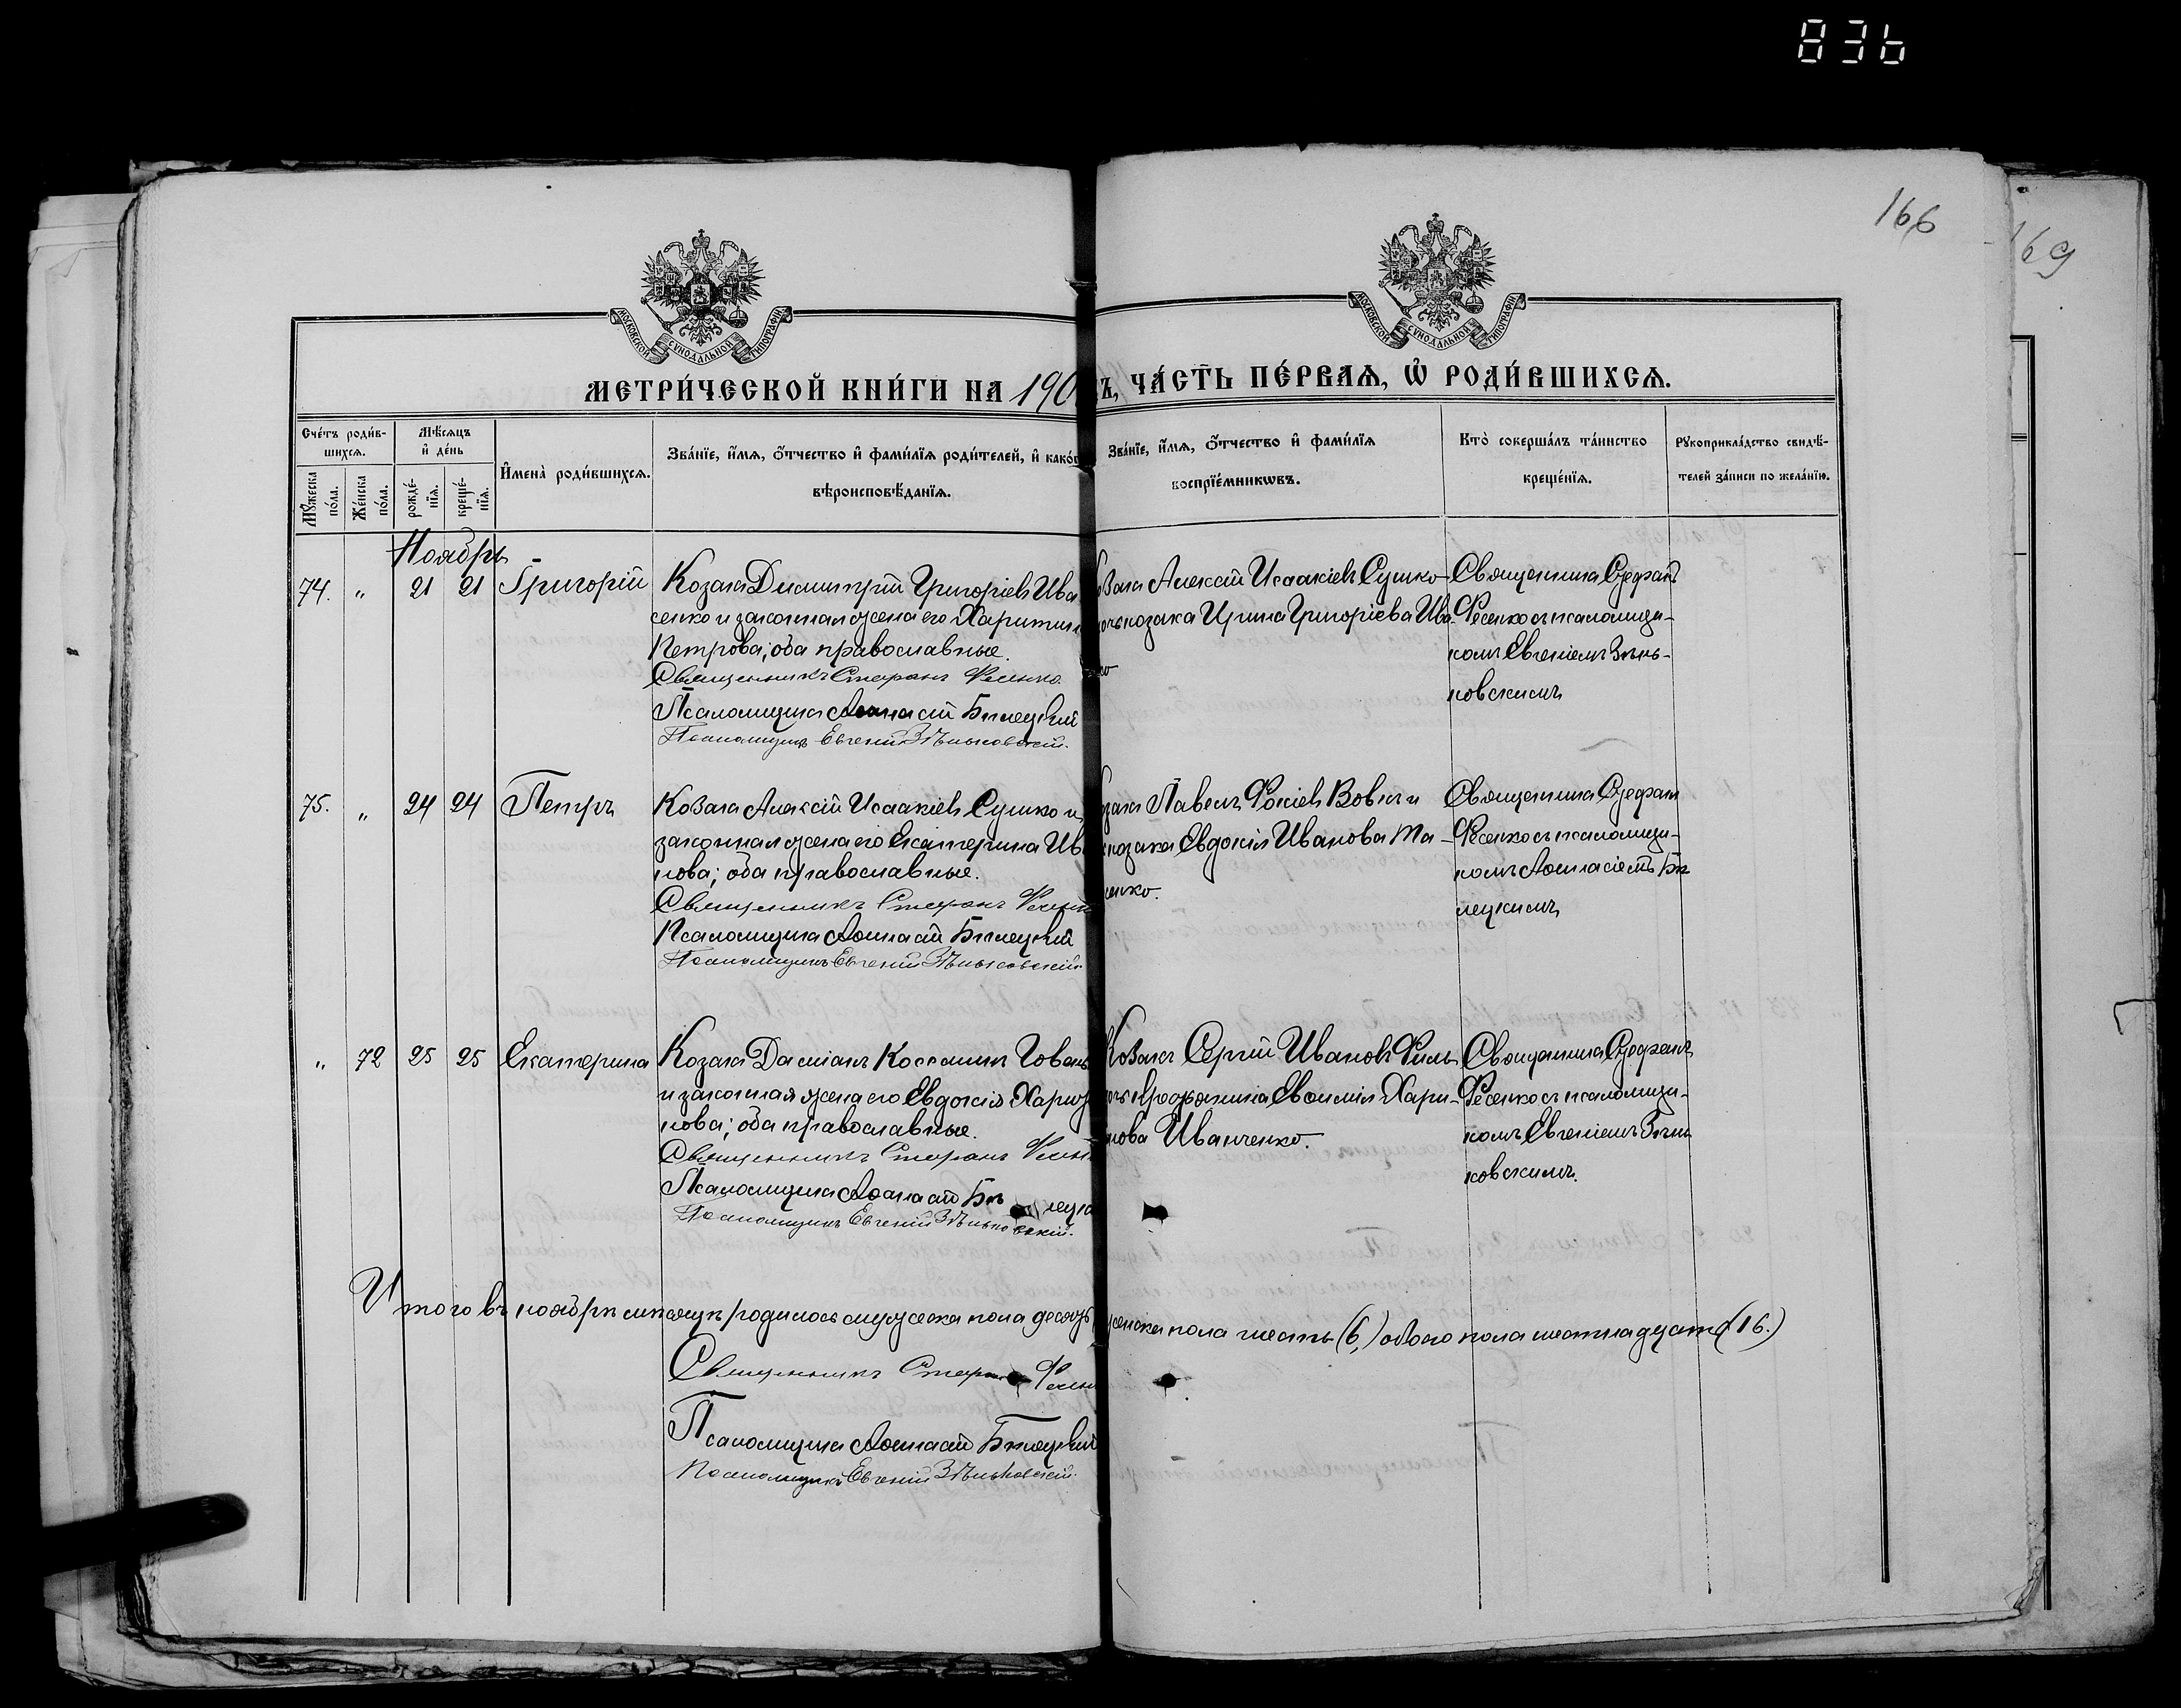 836
166
169
МОСКОВСКОЙ СѴНОДАЛЬНОЙ ТИПОГРАФІИ
МОСКОВСКОЙ СѴНОДАЛЬНОЙ ТИПОГРАФІИ
МЕТРИ́ЧЕСКОЙ КНИ́ГИ НА 190
Ъ, ЧА́СТЬ ПЕ́РВАѦ, Ѡ҆ РОДИ́ВШИХСѦ.
Сче́тъ роди́в-
шихсѧ.
Мѣ́сѧцъ
и҆ де́нь
И҆мена̀ роди́вшихсѧ.
Зва́нїе, и҆́мѧ, ѻ҆́тчество и҆ фами́лїѧ роди́телей, и҆ како́г
вѣроисповѣ́данїѧ.
Мꙋ́жеска по́ла.
Же́нска по́ла.
рожде́-нїѧ.
креще́-нїѧ.
Зва́нїе, и҆́мѧ, ѻ҆́тчество и҆ фами́лїѧ
воспрїе́мникѡвъ.
Кто̀ соверша́лъ та́инство
креще́нїѧ.
Рꙋкоприкла́дство свидѣ́-
телей за́писи по жела́нїю.
Ноябрь
74. " 21 21 Григорій
Козакъ Димитрій Григоріевъ Ива
сенко и законная жена его Харитин
Петрова; оба православные.
Священникъ Стефанъ Фесенко.
Псаломщикъ Аѳанасій Бѣлецкій
Псаломщикъ Евгеній Зѣньковскій.
озакъ Алексій Исаакіевъ Сушко
очь козака Ирина Григоріева Ива-
ко
Священникъ Стефанъ
Фесенко съ псаломщи-
комъ Евгеніемъ Зѣнь-
ковскимъ
75. " 24 24 Петръ
Козакъ Алексій Исаакіевъ Сушко и
законная жена его Екатерина Ив
нова; оба православные.
Священникъ Стефанъ Фесенк
Псаломщикъ Аѳанасій Бѣлецкій
Псаломщикъ Евгеній Зѣньковскій.
озакъ Павелъ Вовкъ и
козака Евдокія Иванова
енко.
Священникъ Стефанъ
Фесенко съ псаломщи-
комъ Аѳанасіемъ Бѣ
лецкимъ
" 72 25 25 Екатерина
Козакъ Даміанъ Косминъ
и законная жена его Евдокія Харито
нова; оба православные.
Священникъ Стефанъ Фесен
Псаломщикъ Аѳанасій Бѣлецк
Псаломщикъ Евгеній Зѣньковскій.
Козакъ Сергій Ивановъ
Евѳимія Хари-
нова Иванченко.
Священникъ Стефанъ
Фесенко съ псаломщи-
комъ Евгеніемъ Зѣнь
ковскимъ.
Итого въ ноябрѣ мѣсяцѣ родилось мужеска пола десять
женска пола шесть (6,) обоего пола шестнадцать (16.)
Священникъ Стефанъ Фесен
Псаломщикъ Аѳанасій Бѣлецкій
Псаломщикъ Евгеній Зѣньковскій.